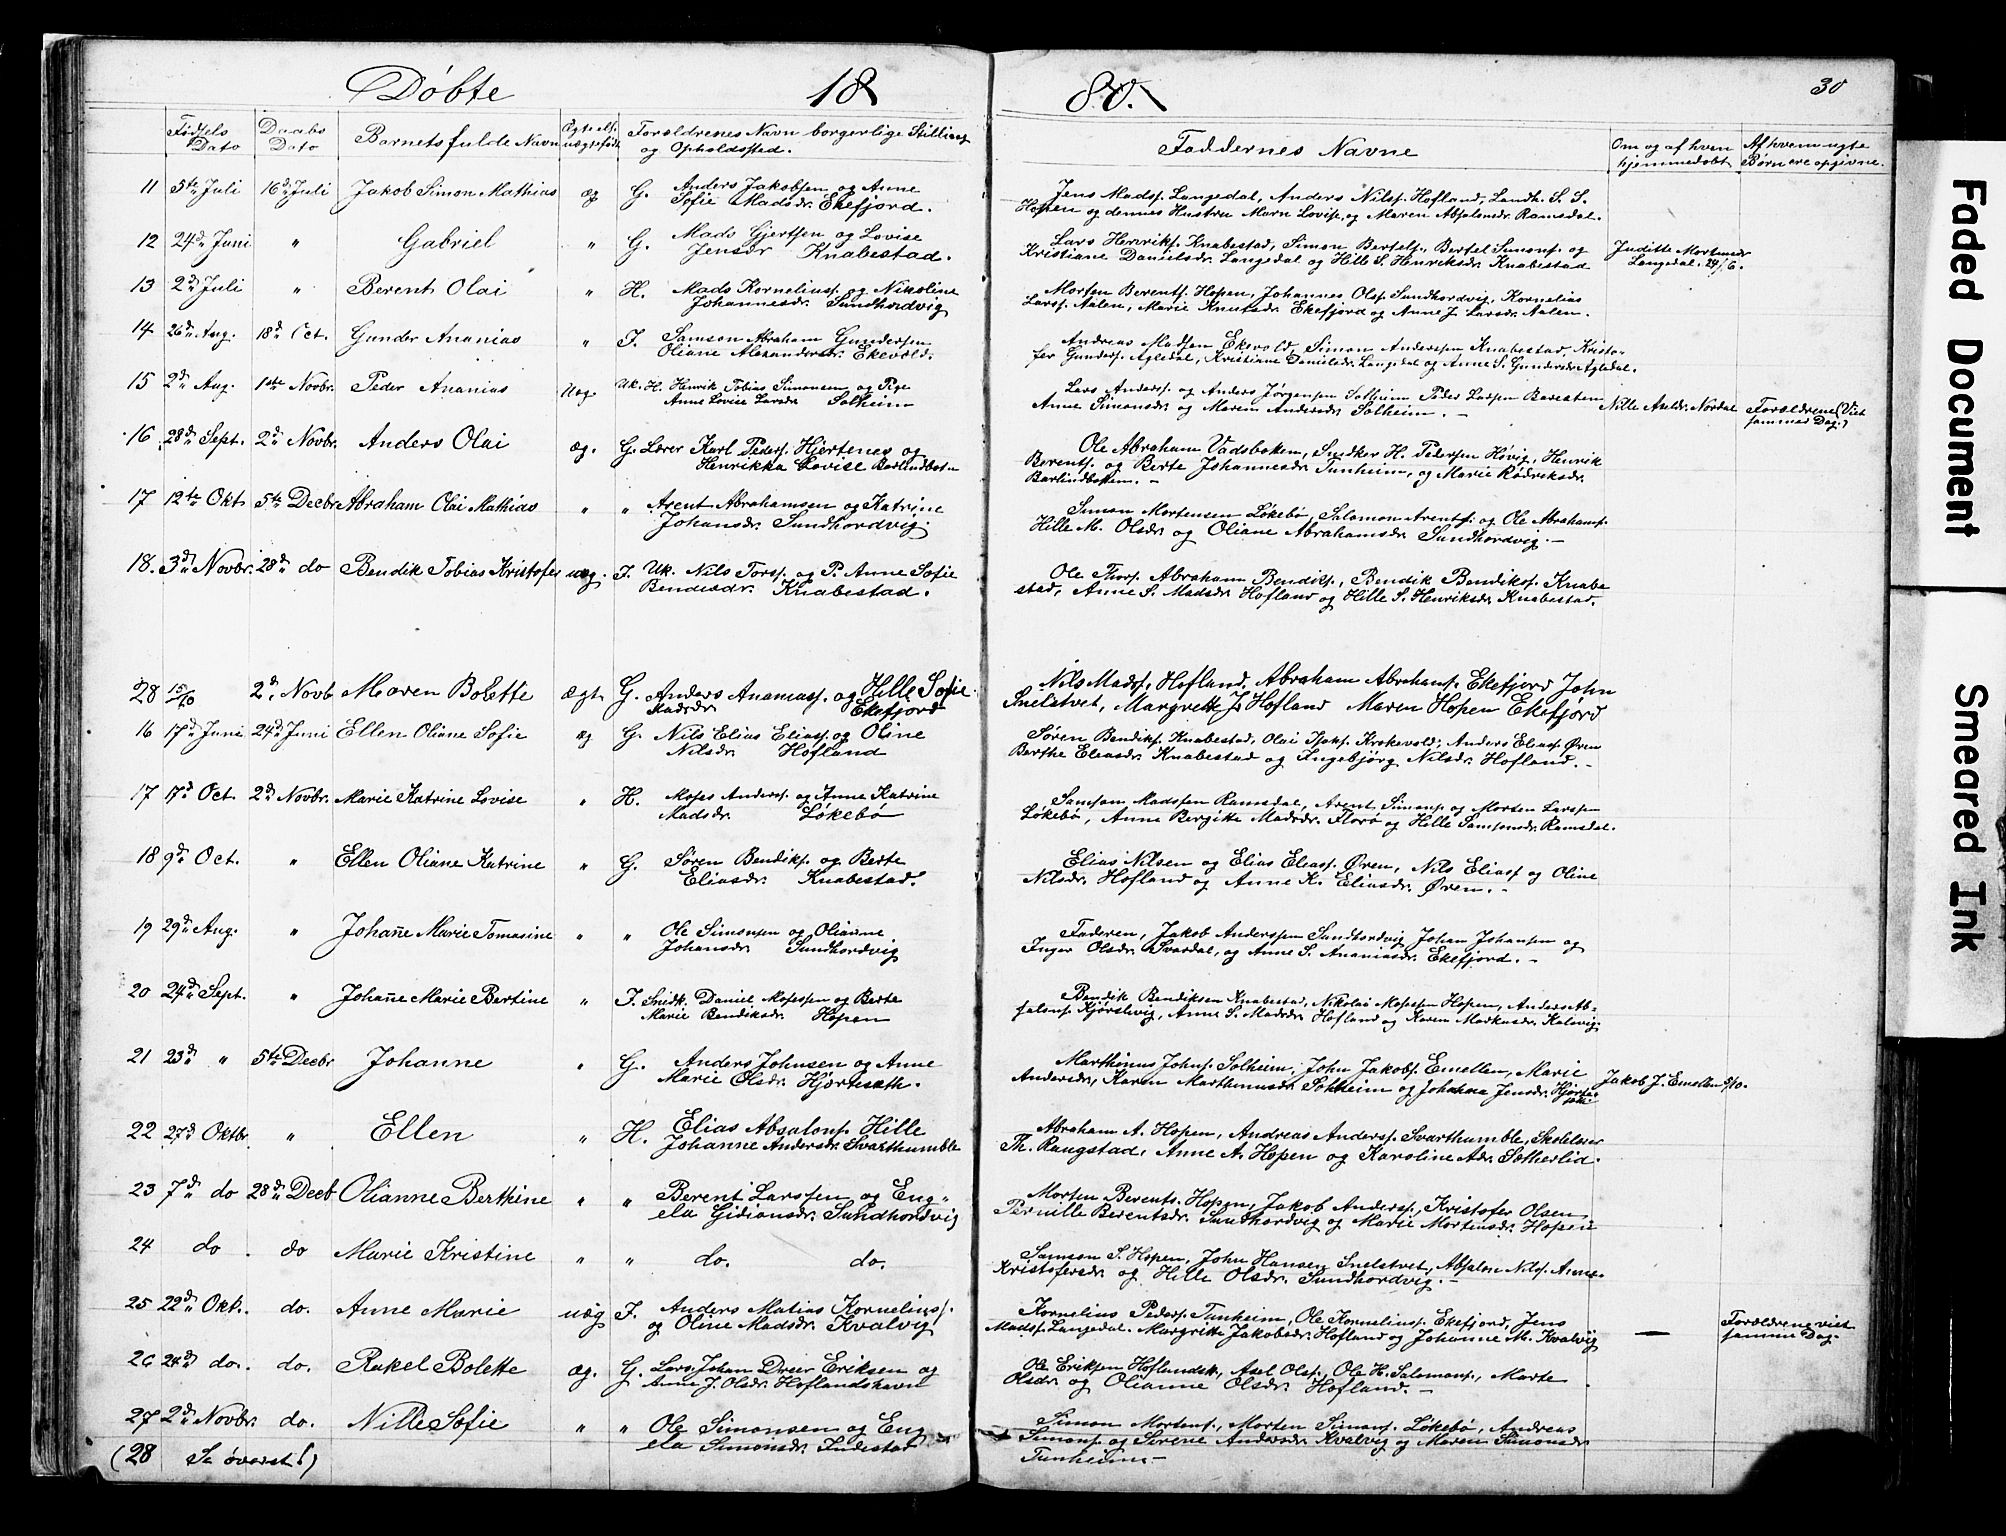 Døbte 1880. 30
Fødsels Dato Daabs Dato Barnets fulde Navn Ægte el. uægtefødt Forældrenes Navn borgerlige Stilling og Opholdsstad. Faddernes Navne Om og af hvem hjemmedøbt Af hvem uægte Børn ere opgivne.
11 5te Juli 16de Juli Jakob Simon Mathias æg G. Anders Jakobsen og Anne
Sofie Madsdr. Ekefjord.
Jens Madss. Langedal, Anders Nilss. Hofland, Landh. S. S.
Hopen og dennes Hustru Marn Lovise, og Maren Absalonsdr. Ramsdal.
12 24de Juni " Gabriel " G. Mads Gjertsen og Lovise
Jensdr Knabestad.
Lars Henriks. Knabestad, Simon Bertels., Bertel Simons. og
Kristiane Danielsdr. Langedal og Hille S. Henriksdr. Knabestad
Juditte Mortensdr
Langedal. 24/6.
13 2de Juli " Berent Olai " H. Mads Kornelius. og Nikoline
Johannesdr. Sundhordvig
Morten Berents. Hopen, Johannes Ols. Sundhordvig, Kornelius
Larss. Aalen, Marie Knutsdr. Ekefjord og Anne J. Larsdr. Aalen.
14 26de Aug. 18de Oct. Gunder Ananias " I. Samson Abraham Gundersen
Oliane Alexandersdr. Ekevold.
Andreas Madsen Ekevold, Simon Andersen Knabestad, Kristo-
fer Gunders. Agledal, Kristiane Danielsdr. Langedal og Anne S. Gundersdr Agledal.
15 2de Aug. 1ste Novbr. Peder Ananias Uæg Uk. H. Henrik Tobias Simonsen og Pige
Anne Lovise Larsdr. Solheim
Lars Anders. og Anders Jørgensen Solheim Peder Larsen Baresten
Anne Simonsdr. og Maren Andersdr. Solheim. -
Nille Axeldr. Nordal
Forældrene (Viet
sammes Dag.)
16 28de Sept. 2de Novbr. Anders Olai æg. G. Lærer Karl Peders. Hjertenes og
Henrikka Lovise Barlindbotn
Ole Abraham Vadsboken, Snedker H. Pedersen Høvig, Henrik
Berents. og Berte Johannesdr. Tunheim, og Marie Rødreksdr.
Barlindbottem. -
17 12te Okt 5te Decbr Abraham Olai Mathias " " Arent Abrahamsen og Katrine
Johansdr. Sundhordvig.
Simon Mortensen Løkebø, Salomon Arents. og Ole Abrahams.
Hille M. Olsdr. og Oliane Abrahamsdr. Sundhordvig. -
18. 3de Novbr. 28de do Bendik Tobias Kristofer uæg. I. Uk. Nils Torss. og P. Anne Sofie
Bendesdr. Knabestad.
Ole Thors. Abraham Bendiks., Bendik Bendiks. Knabe
stad, Anne S. Madsdr. Hofland og Hille S. Henriksdr. Knabestad.
28 15/10 2de Novb Maren Bolette Ægt G. Anders Ananiass. og Hille Sofie
Madsdr. Ekefjord
Nils Madss. Hofland, Abraham Abrahams. Ekefjord John
Snelstvet, Margrette J. Hofland Maren Hopen Ekefjord
16 17de Juni 24de Juni Ellen Oliane Sofie æg G. Nils Elias Eliass. og Oline
Nilsdr. Hofland
Søren Bendiks. Knabestad, Olai Krokevold; Anders Eliass. Øren
Berthe Eliasdr. Knabestad og Ingebjørg Nilsdr. Hofland. -
17 17de Oct. 2de Novbr. Marie Katrine Lovise " H. Moses Anderss. og Anne Katrine
Madsdr. Løkebø
Samson Madssen Ramsdal, Arent Simons. og Morten Larssen
Løkebø, Anne Bergitte Madsdr. Florø og Hille Samsonsdr. Ramsdal.
18 9de Oct. " Ellen Oliane Katrine " G. Søren Bendiks. og Berte
Eliasdr. Knabestad.
Elias Nilsen og Elias Eliass. Øren, Nils Eliass og Oline
Nilsdr. Hofland og Anne K. Eliasdr. Øren. -
19 29de Aug. " Johan̄e Marie Tomasine " " Ole Simonsen og Olianne
Johansdr. Sundhordvig
Faderen, Jakob Anderssen Sundhordvig Johan Johansen og
Inger Olsdr. Svardal, og Anne S. Ananiasdr. Ekefjord. -
20 24de Sept. " Johan̄e Marie Bertine " I. Snidk. Daniel Mosessen og Berte
Marie Bendiksdr. Hopen
Bendik Bendiksen Knabestad, Nikolai Mosessen Hopen, Anders Ab-
salons. Kjørslevig, Anne S. Madsdr. Hofland og Karen Markusdr. Kalvig.
21 23de " 5te Decbr Johanne " G. Anders Johnsen og Anne
Marie Olsdr. Hjortesæth.
Marthinus Johns. Solheim, John Jakobs. Emellem, Marie
Andersdr., Karen Marthinusdr Solheim og Johanna Jensdr. Hjorte-
sæt.
Jakob J. Emellem 5/10.
22 27de Oktbr. " Ellen " H. Elias Absalons. Hille
Johanne Andersdr. Svarthumble
Abraham A. Hopen, Andreas Anders. Svarthumble, Skolelærer
Th. Raugstad, Anne A. Hopen og Karoline Adr. Sætherlid.
23 7de do 28de Decb Olianne Berthine " " Berent Larssen og Eng-
ela Gidionsdr. Sundhordvig
Morten Berents. Hopen, Jakob Anders., Kristofer Olsen
Pernille Berentsdr. Sundhordvig og Marie Mortensdr. Hopen
24 do. do Marie Kristine " " do. do.
Samson S. Hopen, John Hansen Snelstvet, Absalon Nils. Anne
Kristofersdr og Hille Olsdr. Sundhordvig. -
25 22de Okt. do. Anne Marie uæg I. Anders Matias Kornelius.
og Oline Madsdr. Kvalvig
Kornelius Peders. Tunheim, Ole Kornelius. Ekefjord, Jens
Madss. Langedal. Margritte Jakobsdr. Hofland og Johanne M. Kvalvig
—
Forældrene viet
samme Dag.
26 24de do. do. Rakel Bolette æg. G. Lars Johan Eriksen og
Anne J. Olsdr. Hoflandshavn
Ole Eriksen Hoflandsh., Axel Ols., Ole H. Salomons., Marte
Olsdr. og Olianne Olsdr. Hofland. -
27 2de Novbr. do. Nille Sofie " " Ole Simonsen og Eng
ela Simonsdr. Indestad
Simon Mortens., Morten Simons. Løkebø, Andreas
Simons. og Sirene Andersdr. Kvalvig og Maren Simonsdr
Tunheim -
(28 Se øverst!)
Faded Document
Smeared Ink